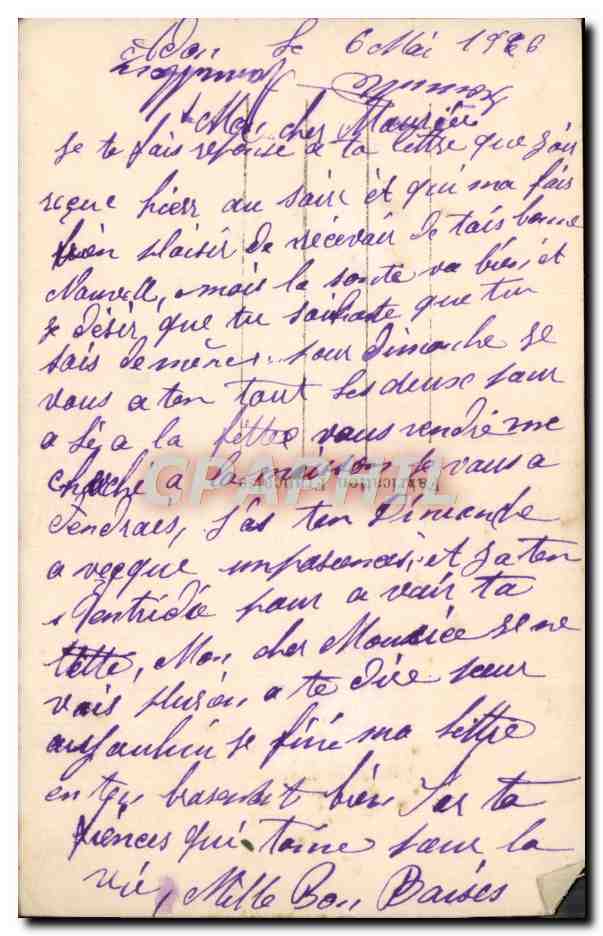 le 6 Mai 1926
Mon cher Maurice
Je te fais reponse a ta lettre que j'ai
reçue hier au soir et qui ma fais
bien plaisir de recevoir de tais bonne
Nouvell, mais la sante va bien et
je désir que tu soihate que tu
sais de mêmes. pour dimanche je
vous a ten tout les deux pour
a lé a la fettee vous vendré me
cherché a la maison je vous a
tendraes, j'as ten Dimande
a vecque impasiences, et j'aten
pour a voir ta
tette, Mon cher Maurice je ne
vois plus rien a te dire pour
aujourhui je finé ma lettre
en ten brasendt bien Par ta
fiences qui t'aime pour la
vie, Mille Bon Baisés
CPAPHIL